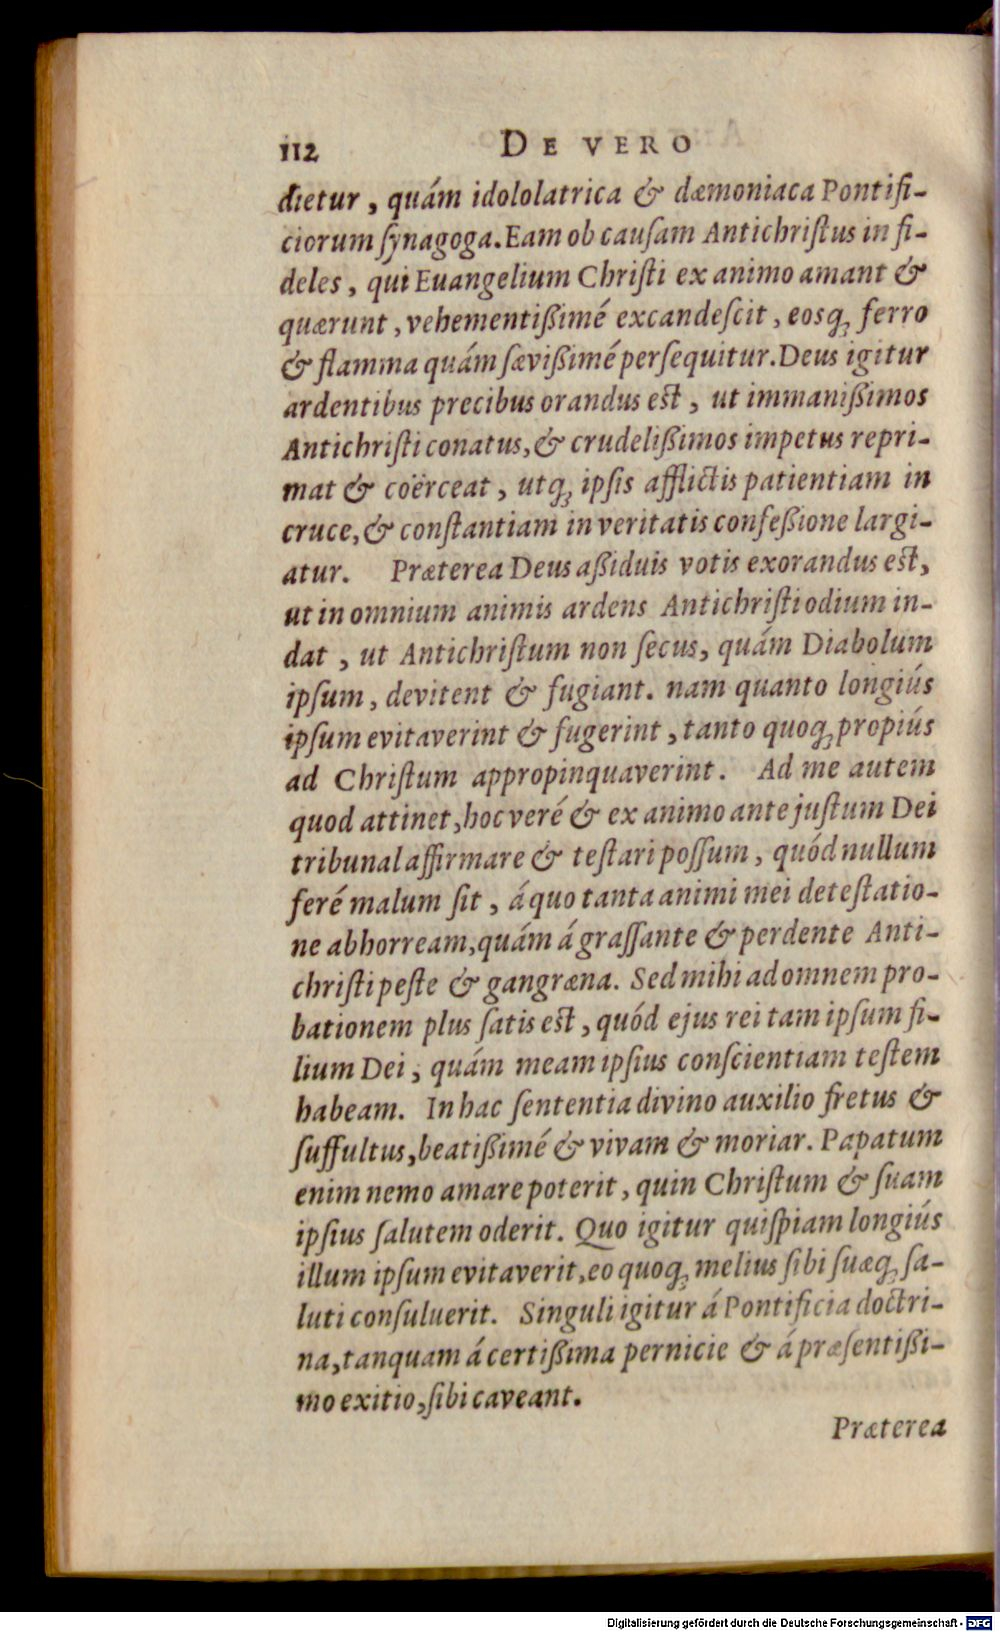 112 DE VERO
dietur, quám idololatrica & dæmoniaca Pontifi-
ciorum ſynagoga. Eam ob cauſam Antichriſtus in fi-
deles, qui Euangelium Chriſti ex animo amant &
quærunt, vehementißimé excandeſcit, eosq; ferro
& flamma quám ſævißimé perſequitur. Deus igitur
ardentibus precibus orandus est, ut immanißimos
Antichriſti conatus, & crudelißimos impetus repri-
mat & coërceat, utq; ipſis afflictis patientiam in
cruce, & conſtantiam in veritatis confeßione largi-
atur. Præterea Deus aßiduis votis exorandus est,
ut in omnium animis ardens Antichriſti odium in-
dat, ut Antichriſtum non ſecus, quám Diabolum
ipſum, devitent & fugiant. nam quanto longiús
ipſum evitaverint & fugerint, tanto quoq; propiús
ad Chriſtum appropinquaverint. Ad me autem
quod attinet, hoc veré & ex animo ante juſtum Dei
tribunal affirmare & teſtari poſſum, quód nullum
feré malum ſit, á quo tanta animi mei deteſtatio-
ne abhorream, quám á graſſante & perdente Anti-
chriſti peſte & gangræna. Sed mihi ad omnem pro-
bationem plus ſatis est, quód ejus rei tam ipſum fi-
lium Dei, quám meam ipſius conſcientiam teſtem
habeam. In hac ſententia divino auxilio fretus &
ſuffultus, beatißimé & vivam & moriar. Papatum
enim nemo amare poterit, quin Chriſtum & ſuam
ipſius ſalutem oderit. Quo igitur quiſpiam longiús
illum ipſum evitaverit, eo quoq; melius ſibi ſuæq; ſa-
luti conſuluerit. Singuli igitur á Pontificia doctri-
na, tanquam á certißima pernicie & á præſentißi-
mo exitio, ſibi caveant.
Præterea
Digitalisierung gefördert durch die Deutsche Forschungsgemeinschaft - DFG